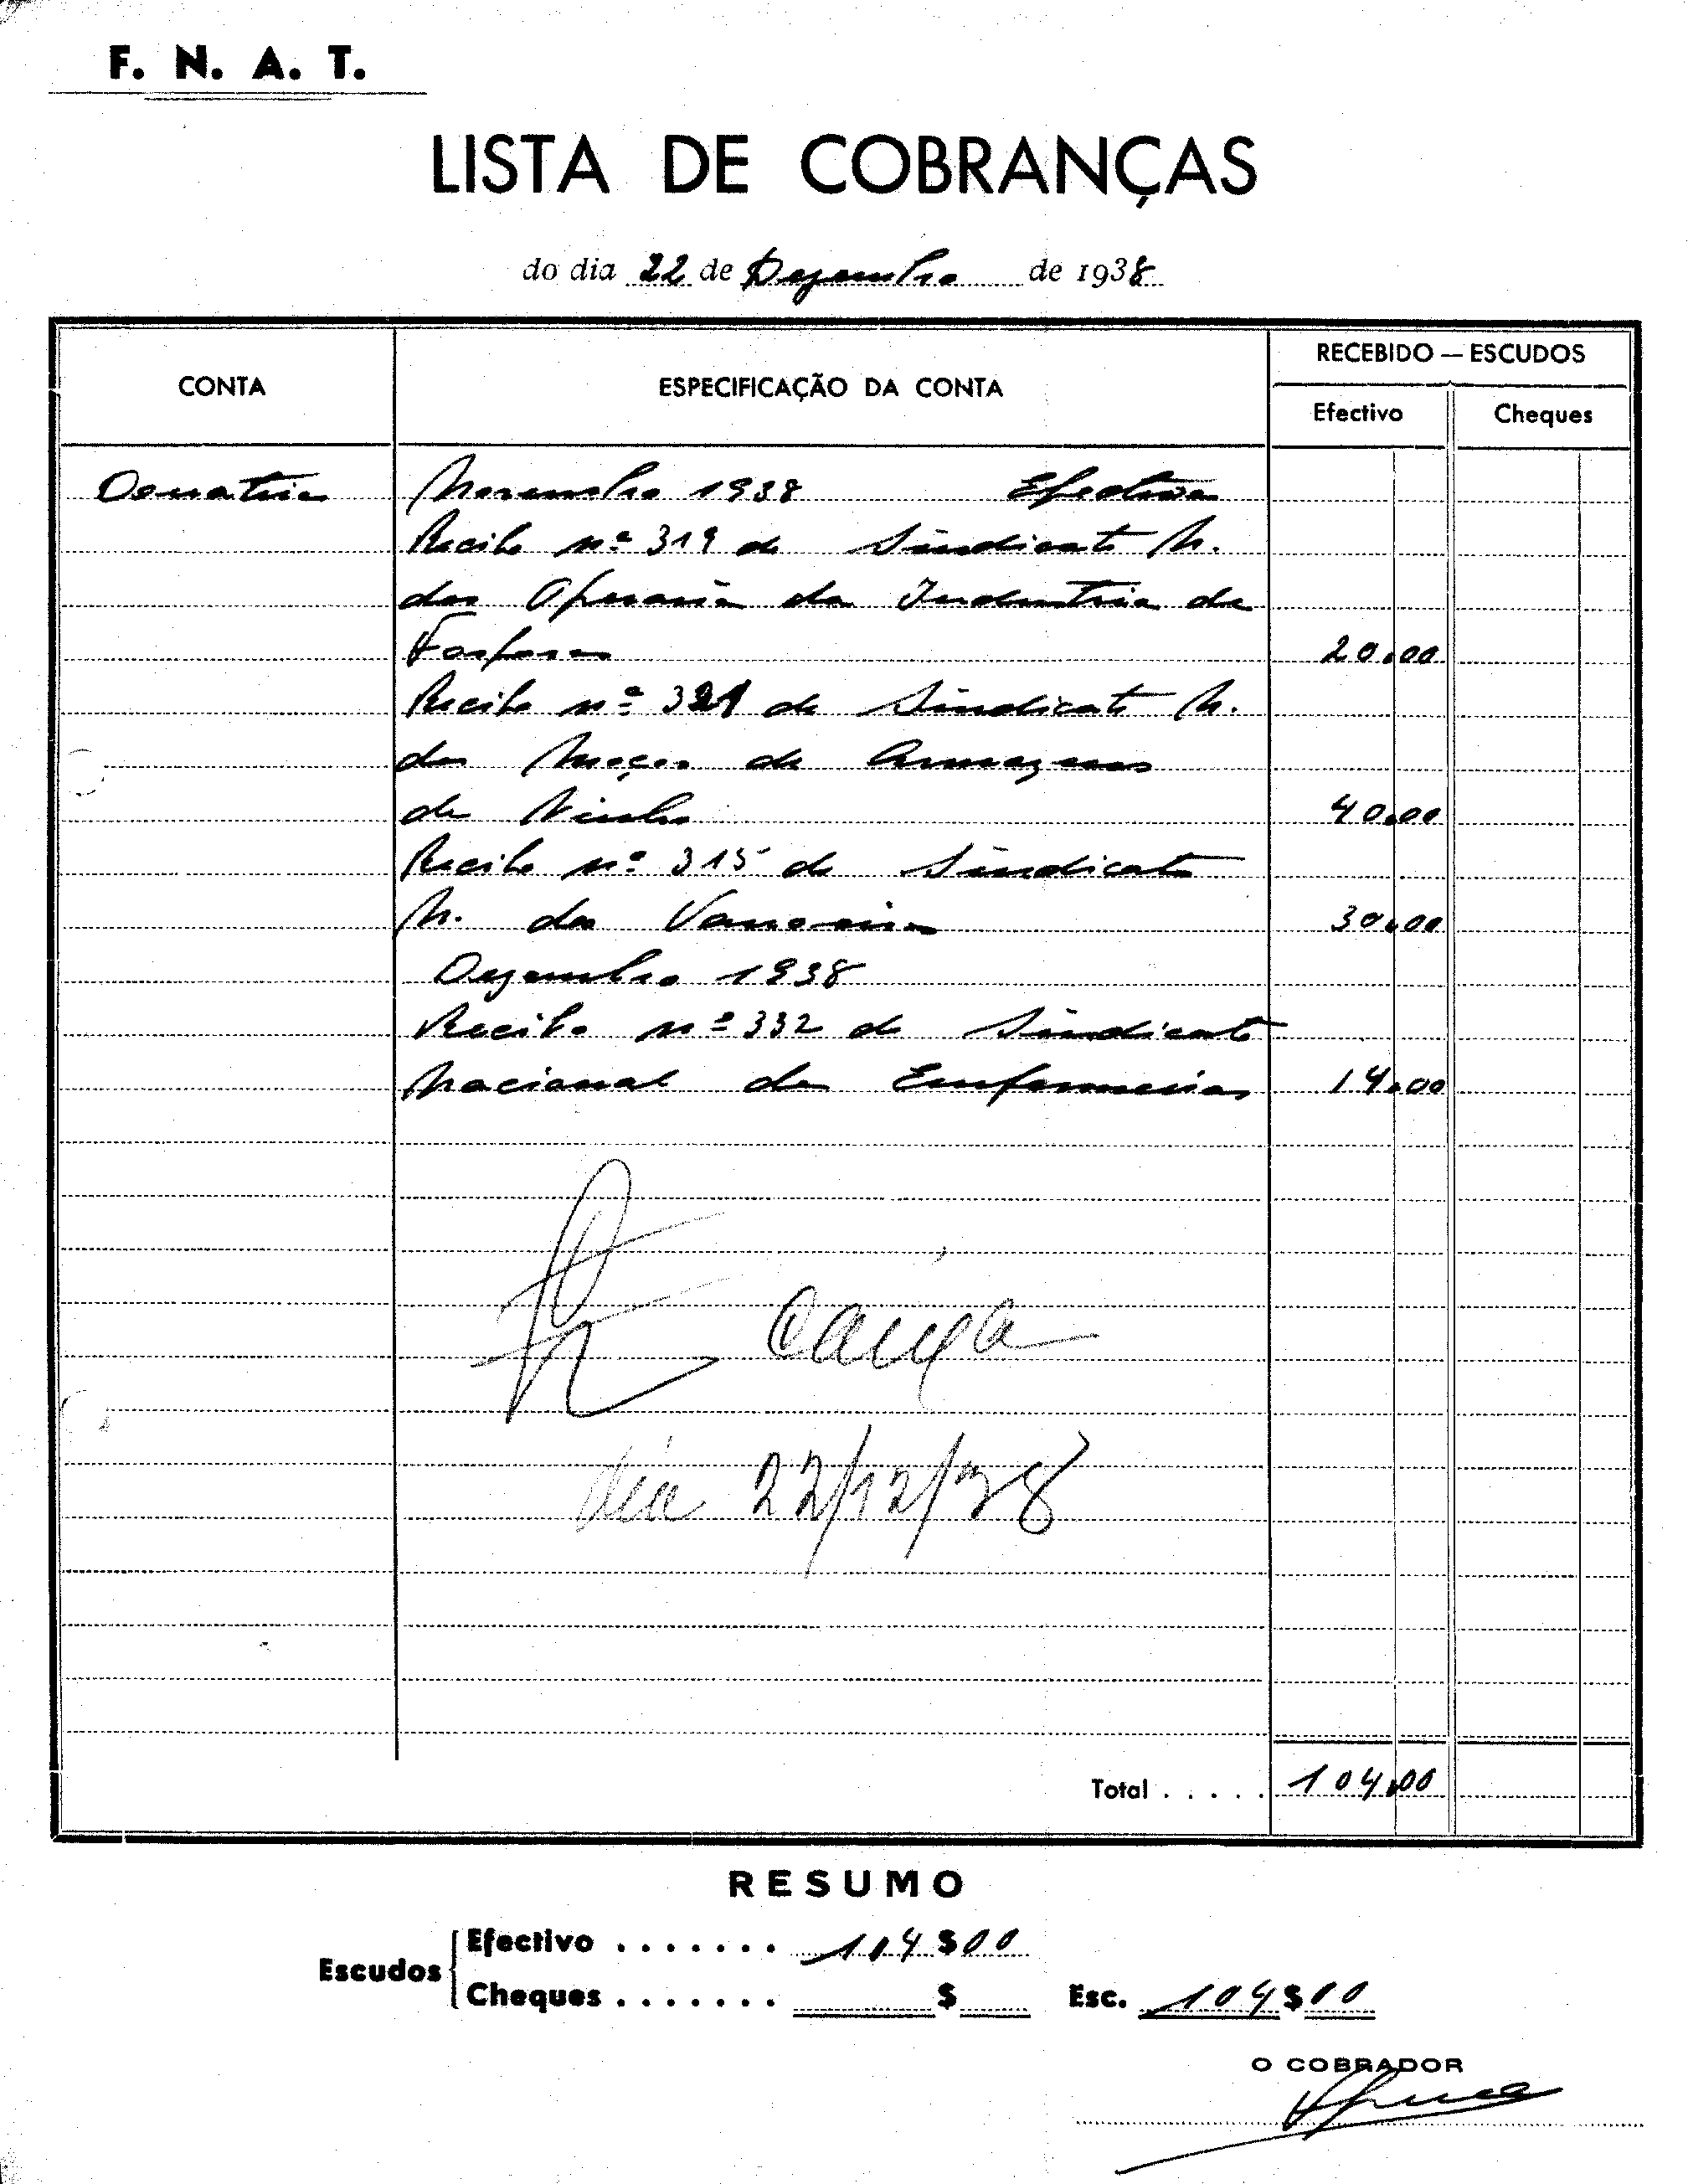 F. N. A. T.
LISTA DE COBRANÇAS
do dia 22 de Dezembro de 1938
CONTA ESPECIFICAÇÃO DA CONTA RECEBIDO — ESCUDOS
Efectivo Cheques
Novembro 1938
Recibo nº 319 do Sindicato N.
dos Operarios da Industria de
Fosforos 20.00
Recibo nº 321 do Sindicato N.
dos Moços de Armazens
de Vinho 40.00
Recibo nº 315 do Sindicato
N. dos 30.00
Dezembro 1938
Recibo nº 332 do Sindicato
Nacional de Enfermeiros 14.00
Caixa
dia 22/12/38
Total . . . . . 104.00
RESUMO
Escudos Efectivo . . . . . . . 104$00
Cheques . . . . . . . $ Esc. 104$00
O COBRADOR